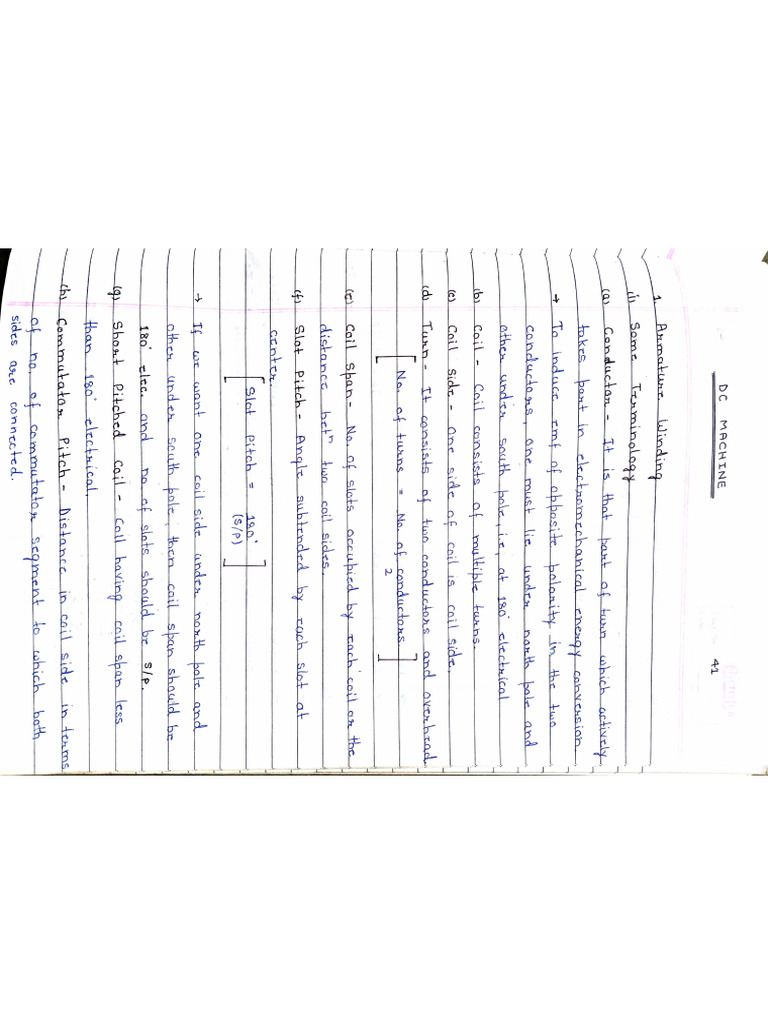 DC MACHINE
41
1. Armature Winding
(i) Some Terminology
(a) Conductor - It is that part of turn which actively
takes part in electromechanical energy conversion
→ To induce emf of opposite polarity in the two
conductors, one must lie under north pole and
other under south pole, i.e, at 180° electrical
(b) Coil - Coil consists of multiple turns.
(c) Coil Side - One side of coil is coil side.
(d) Turn - It consists of two conductors and overhead
[ No. of turns = No. of conductors
2 ]
(e) Coil Span - No. of slots occupied by each coil or the
distance betn two coil sides.
(f) Slot Pitch - Angle subtended by each slot at
center.
[ Slot Pitch = 180°
(S/P) ]
→ If we want one coil side under north pole and
other under south pole, then coil span should be
180° elec. and no of slots should be S/P.
(g) Short Pitched Coil - Coil having coil span less
than 180° electrical.
(h) Commutator Pitch - Distance in coil side in terms
of no. of commutator segment to which both
sides are connected.